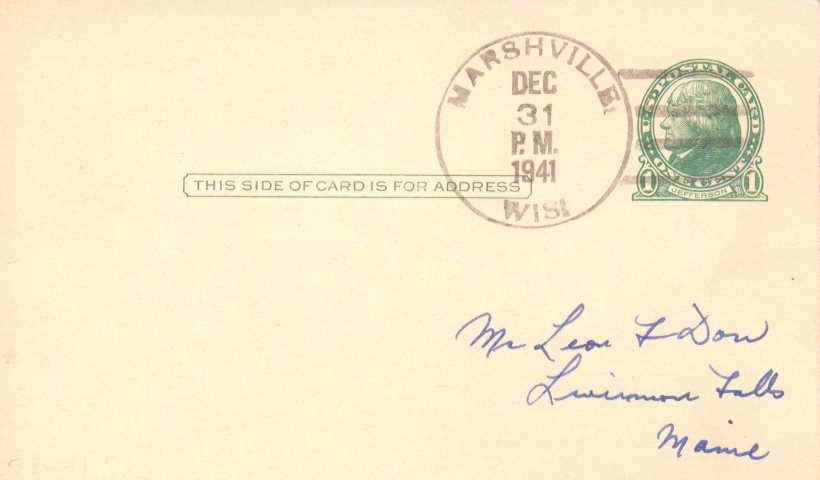 MARSHVILLE
DEC
31
P.M.
1941
WIS.
U.S. POSTAL CARD
ONE CENT
1 JEFFERSON 1
THIS SIDE OF CARD IS FOR ADDRESS
Mr Leon F Dow
Falls
Maine